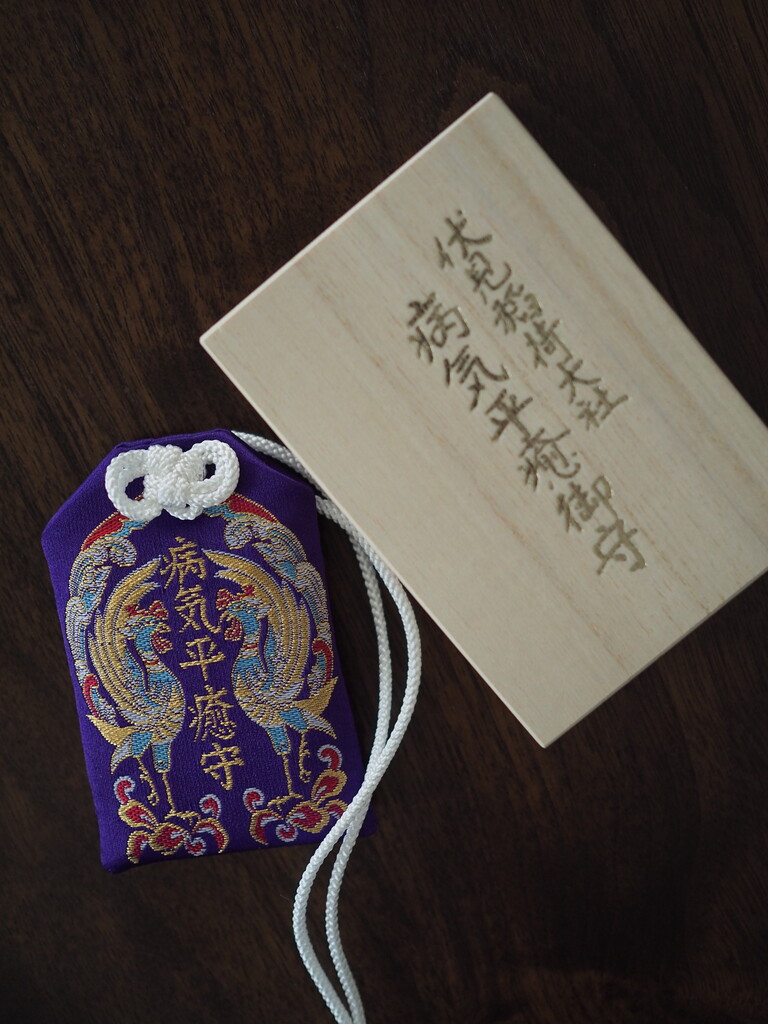 伏見稲荷大社
病気平癒御守
病気平癒守